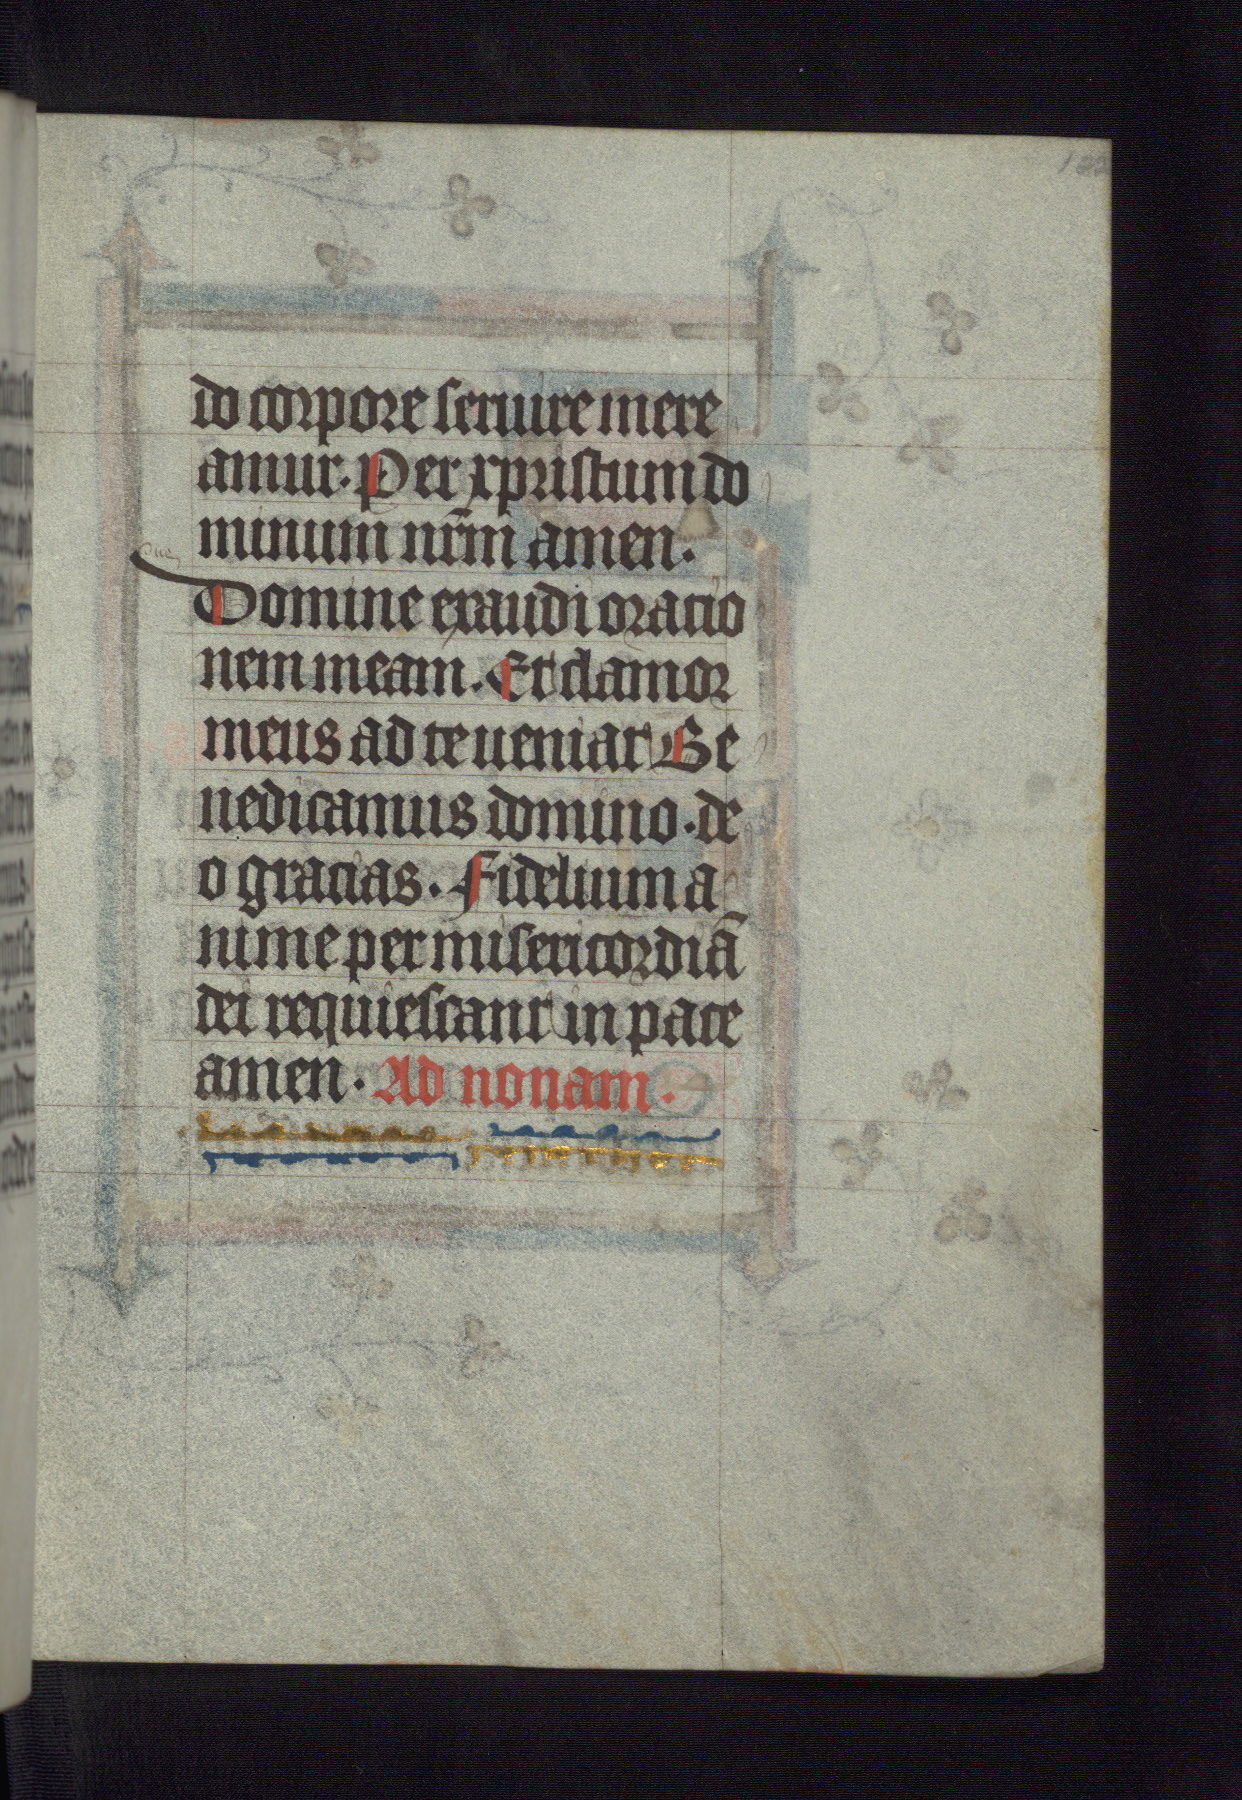 do corpore seruire mere
amur. Per xpristum do
minum nr̄m amen.
Domine exaudi oratio
nem meam. Et clamor
meus ad te ueniat Be
nedicamus domino. de
o gracias. Fidelium a
nime per misericordiā
dei requiescant in pace
amen. Ad nonam.